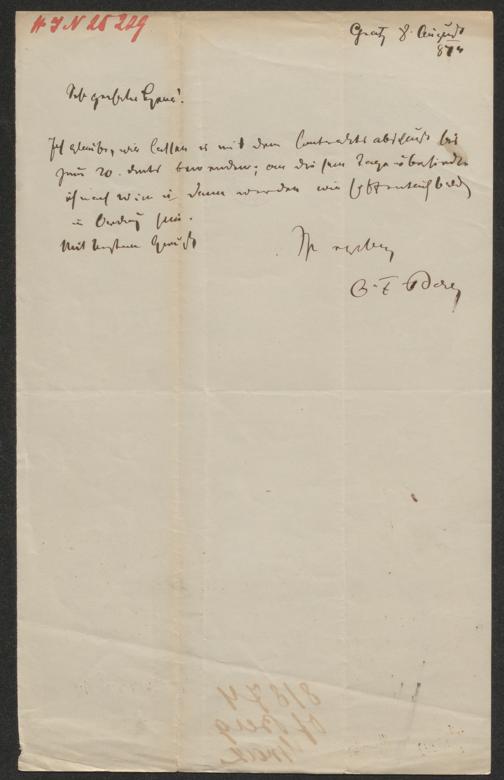 H I N 25 229
Gratz 8. August
874
Sehr geehrter Herr!
Ich glaube, wir lassen es mit dem Contractsabschluß bis
zum 20. bewenden; an diesem Tage übersiedle
ich nach Wien u. dann werden wir hoffentlich bald
in Ordnung sein.
Mit bestem Gruß
Ihr ergebener
8/874
Gratz